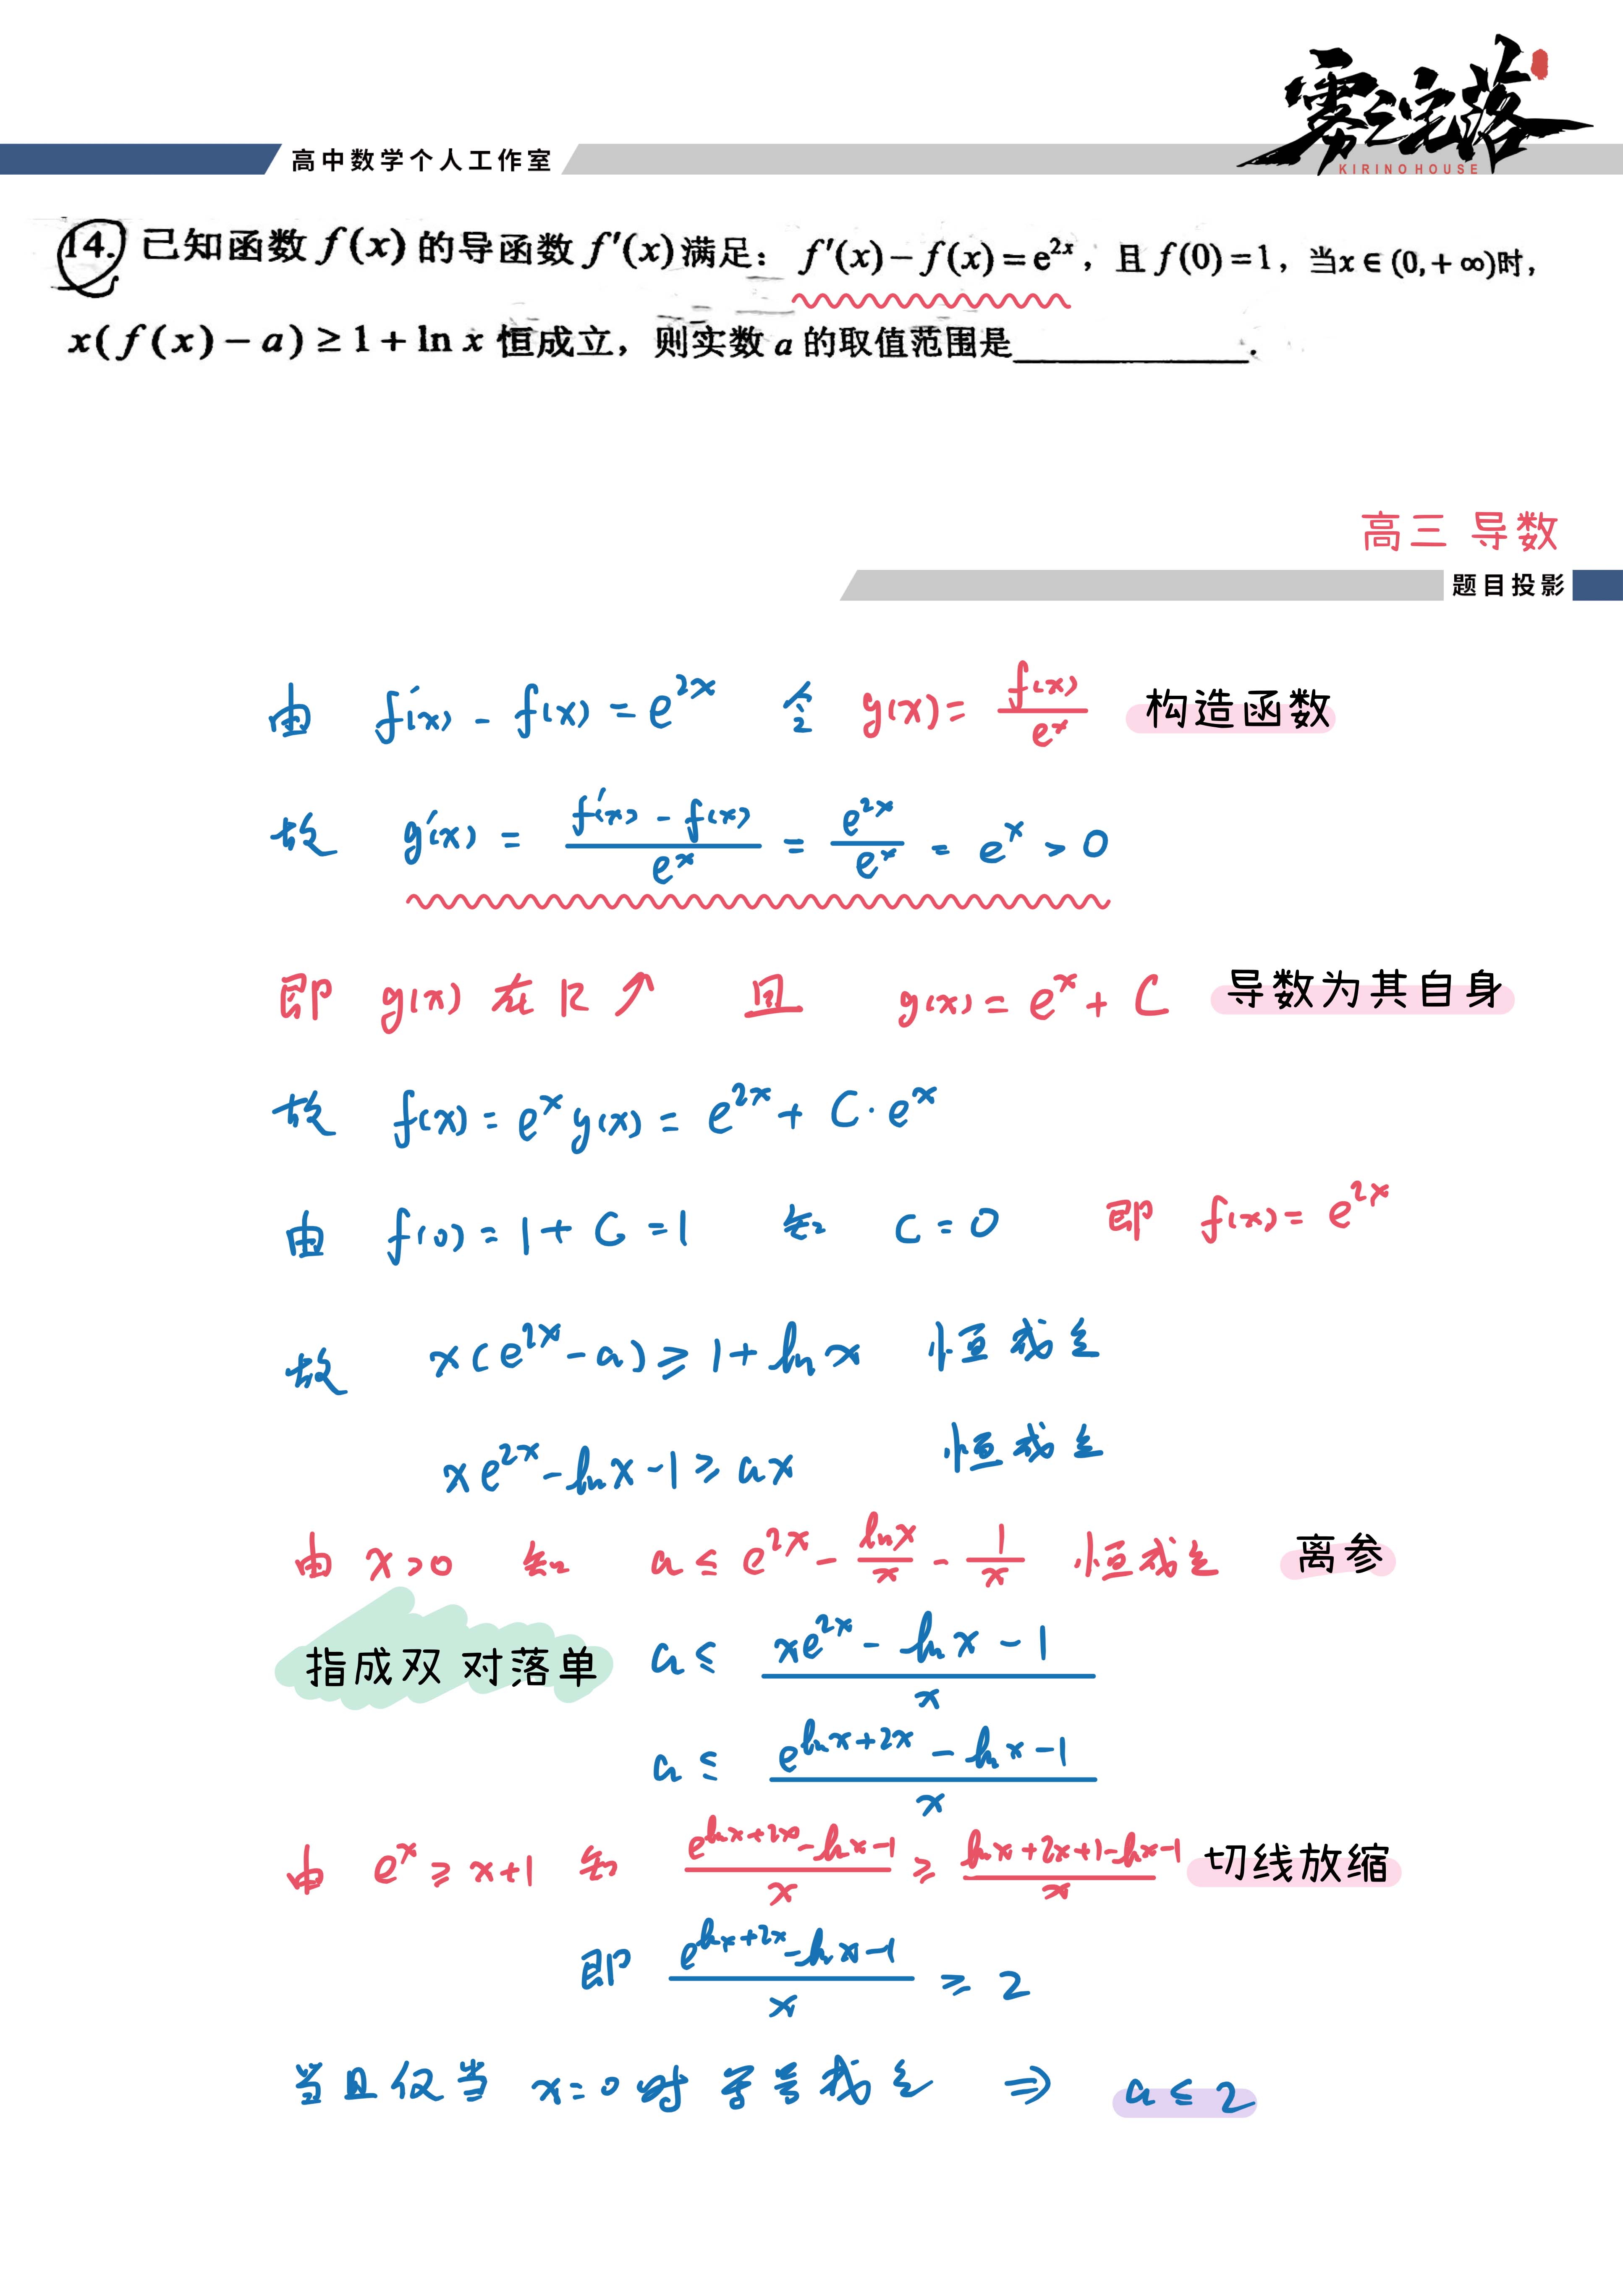 雾之宅落
KIRINO HOUSE
高中数学个人工作室
14. 已知函数 f(x) 的导函数 f′(x) 满足：f′(x)－f(x)＝e^{2x}，且 f(0)＝1，当x∈(0,＋∞)时，
x(f(x)－a)≥1＋ln x 恒成立，则实数 a 的取值范围是____________.
高三 导数
题目投影
由 f′(x) - f(x) = e^{2x} 令 g(x) = \frac{f(x)}{e^x} 构造函数
故 g′(x) = \frac{f′(x) - f(x)}{e^x} = \frac{e^{2x}}{e^x} = e^x > 0
即 g(x) 在 R ↗ 且 g(x) = e^x + C 导数为其自身
故 f(x) = e^x g(x) = e^{2x} + C·e^x
由 f(0) = 1 + C = 1 知 C = 0 即 f(x) = e^{2x}
故 x(e^{2x} - a) ≥ 1 + ln x 恒成立
xe^{2x} - ln x - 1 ≥ ax 恒成立
由 x>0 知 a ≤ e^{2x} - \frac{ln x}{x} - \frac{1}{x} 恒成立 离参
指成双 对落单 a ≤ \frac{xe^{2x} - ln x - 1}{x}
a ≤ \frac{e^{ln x+2x} - ln x - 1}{x}
由 e^x ≥ x+1 知 \frac{e^{ln x+2x} - ln x - 1}{x} ≥ \frac{ln x + 2x + 1 - ln x - 1}{x} 切线放缩
即 \frac{e^{ln x+2x} - ln x - 1}{x} ≥ 2
当且仅当 x=0 时 等号成立 ⇒ a ≤ 2